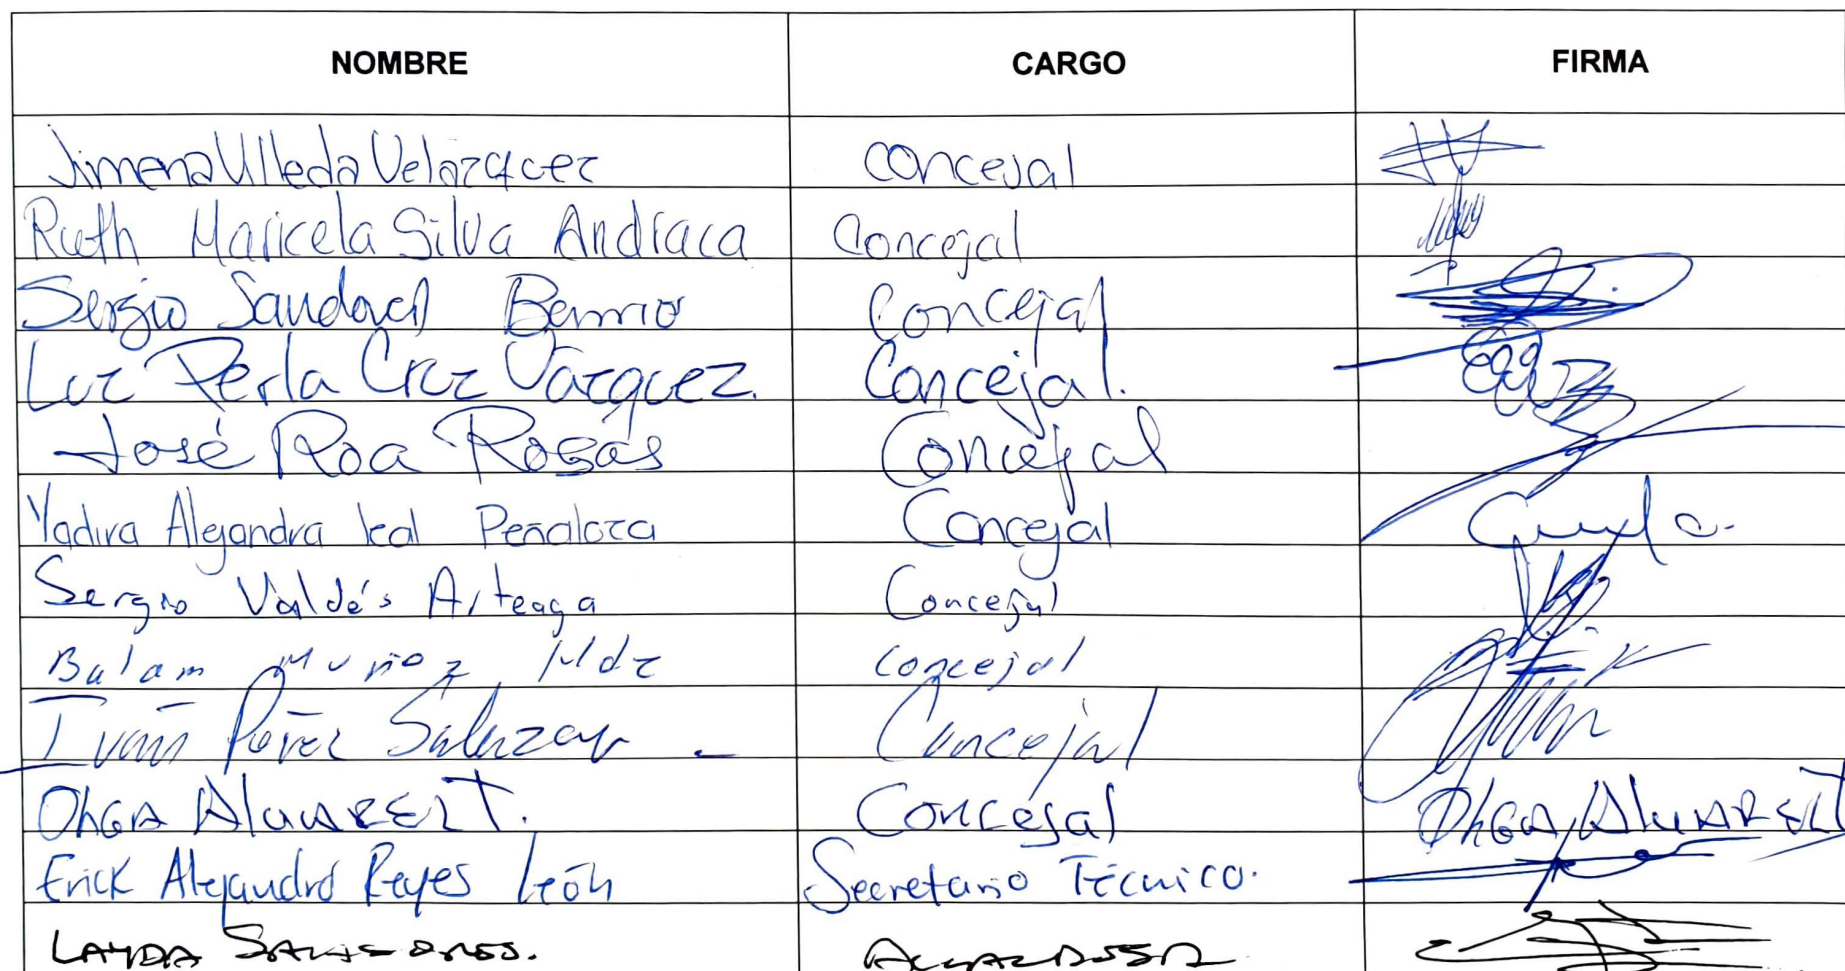 NOMBRE CARGO FIRMA
Jimena Ulleda Velázquez concejal
Ruth Maricela Silva Andraca Concejal
Sergio Sandoval Barrio Concejal
Luz Perla Cruz Vázquez. Concejal.
José Roa Rosas Concejal
Yadira Alejandra leal Peñaloza Concejal
Sergio Valdés Arteaga Concejal
Balam Muñoz Mdz concejal
Iván Pérez Salazar - Concejal
OhGA AlvAREz T. Concejal OhGA AlvAREz T
Erick Alejandro Reyes León Secretario Técnico.
LAYDA SANSORES. ALCALDESA